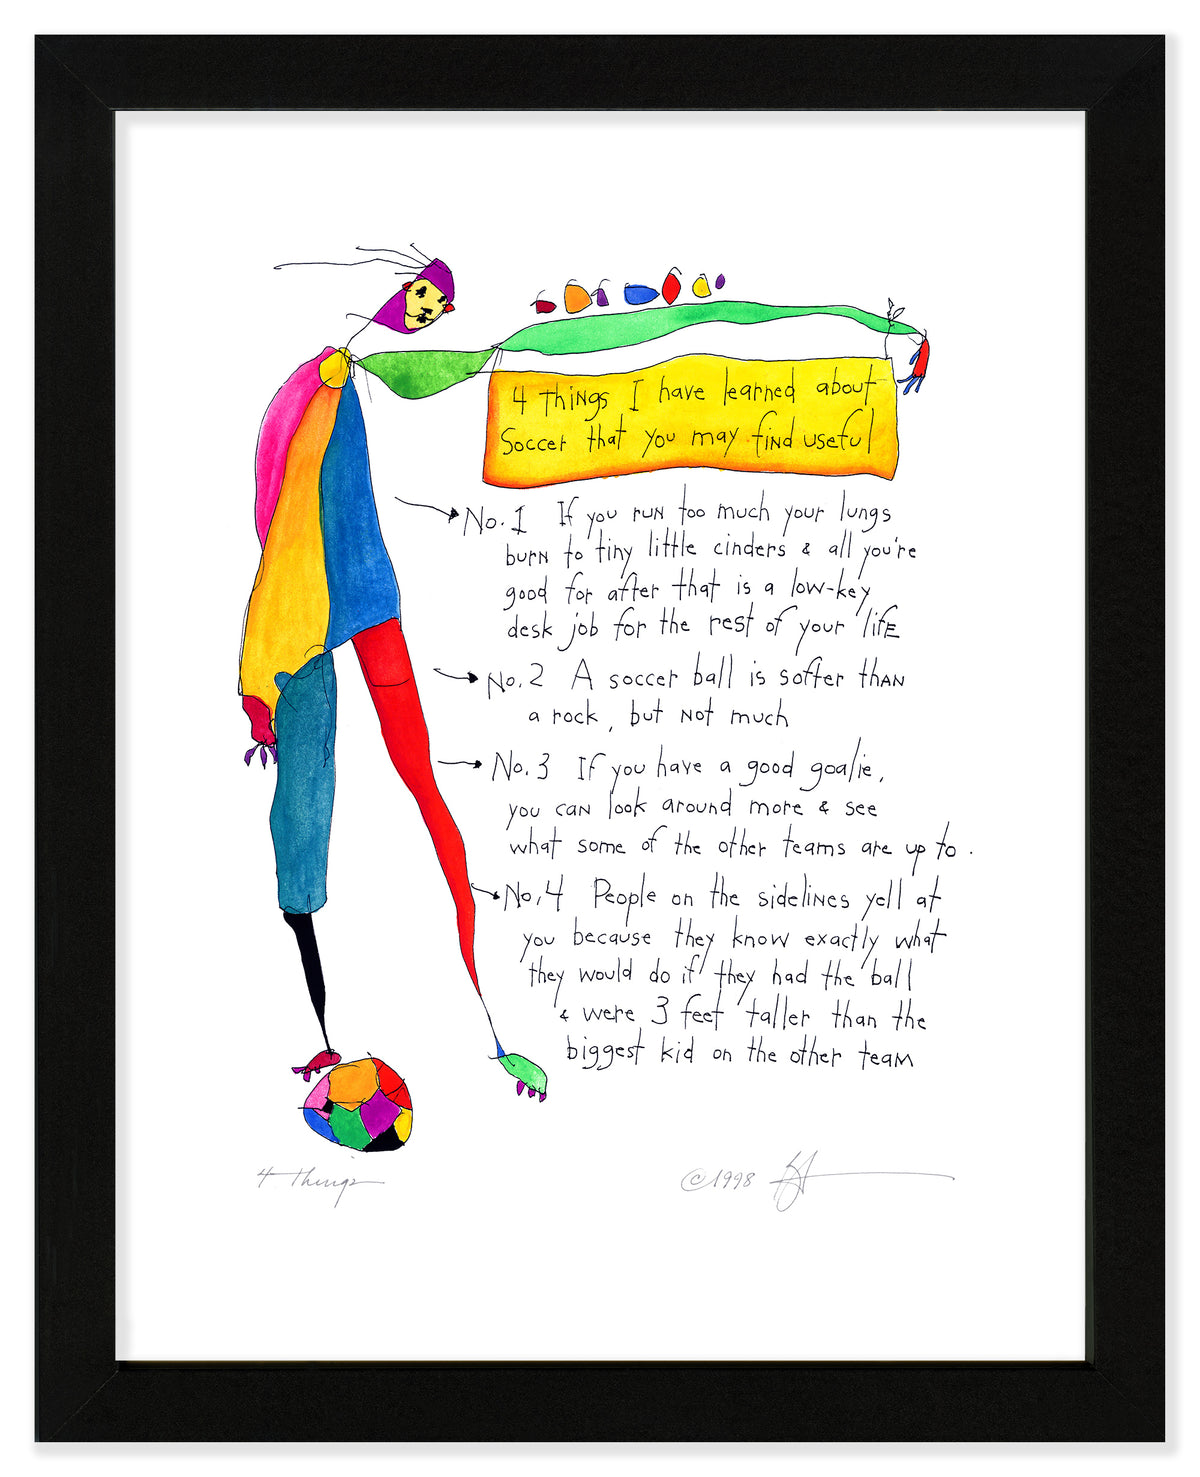 4 things I have learned about
Soccer that you may find useful
No. 1 If you run too much your lungs
burn to tiny little cinders & all you're
good for after that is a low-key
desk job for the rest of your life
No. 2 A soccer ball is softer than
a rock, but not much
No. 3 If you have a good goalie,
you can look around more & see
what some of the other teams are up to.
No. 4 People on the sidelines yell at
you because they know exactly what
they would do if they had the ball
& were 3 feet taller than the
biggest kid on the other team
4 Things
©1998